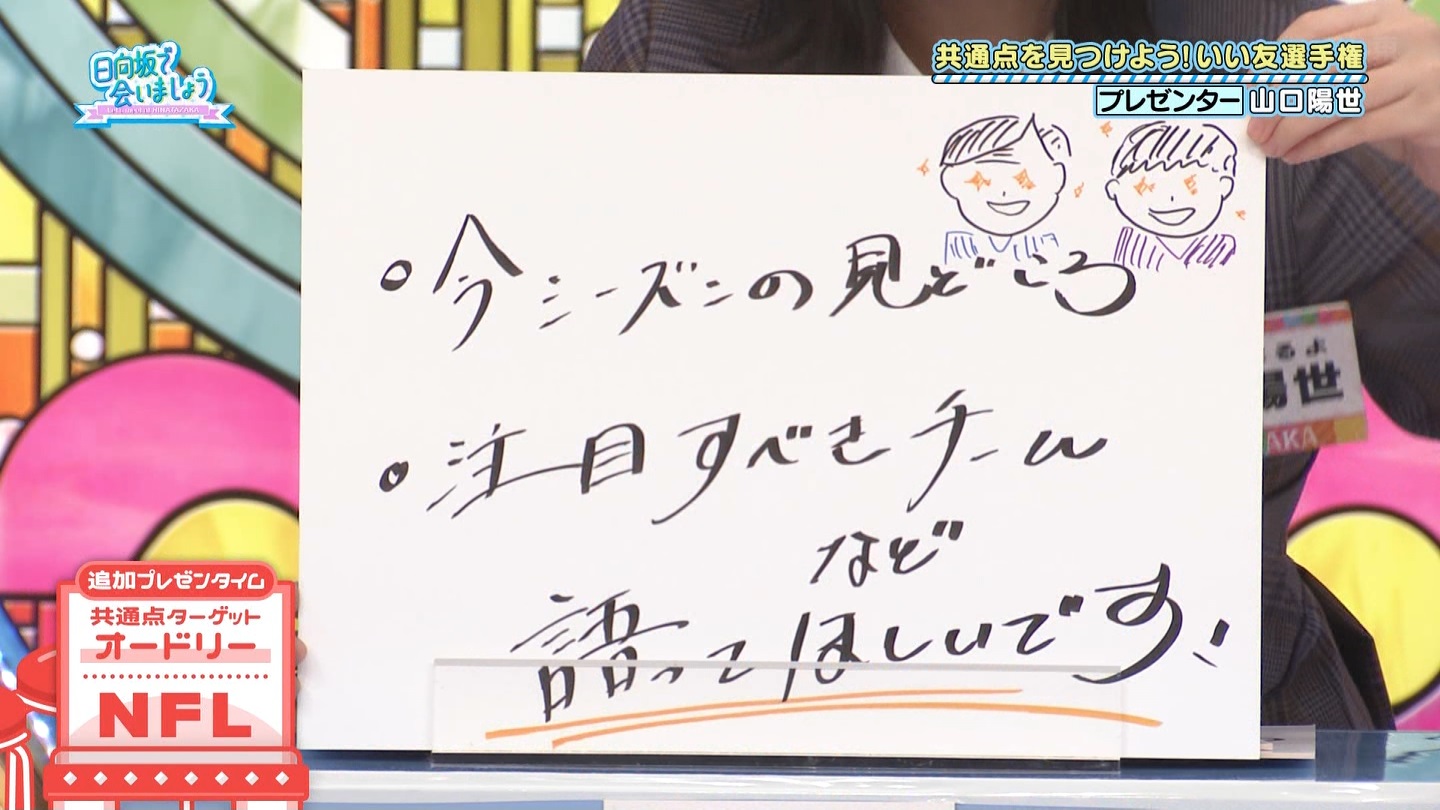 日向坂で
会いましょう
共通点を見つけよう!いい友選手権
プレゼンター 山口陽世
・今シーズンの見どころ
・注目すべきチーム
など
語ってほしいです!
るよ
陽世
AKA
追加プレゼンタイム
共通点ターゲット
オードリー
NFL